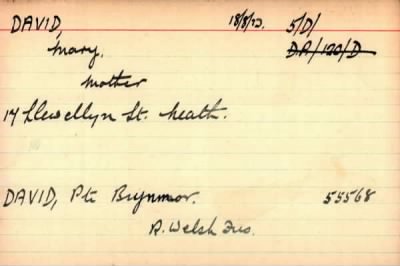 DAVID, 18/8/23. 5/D/
Mary. D.A/120/D
Mother
14 Llewellyn St. Neath.
DAVID, Pte Brynmor. 55568
R. Welsh Fus.